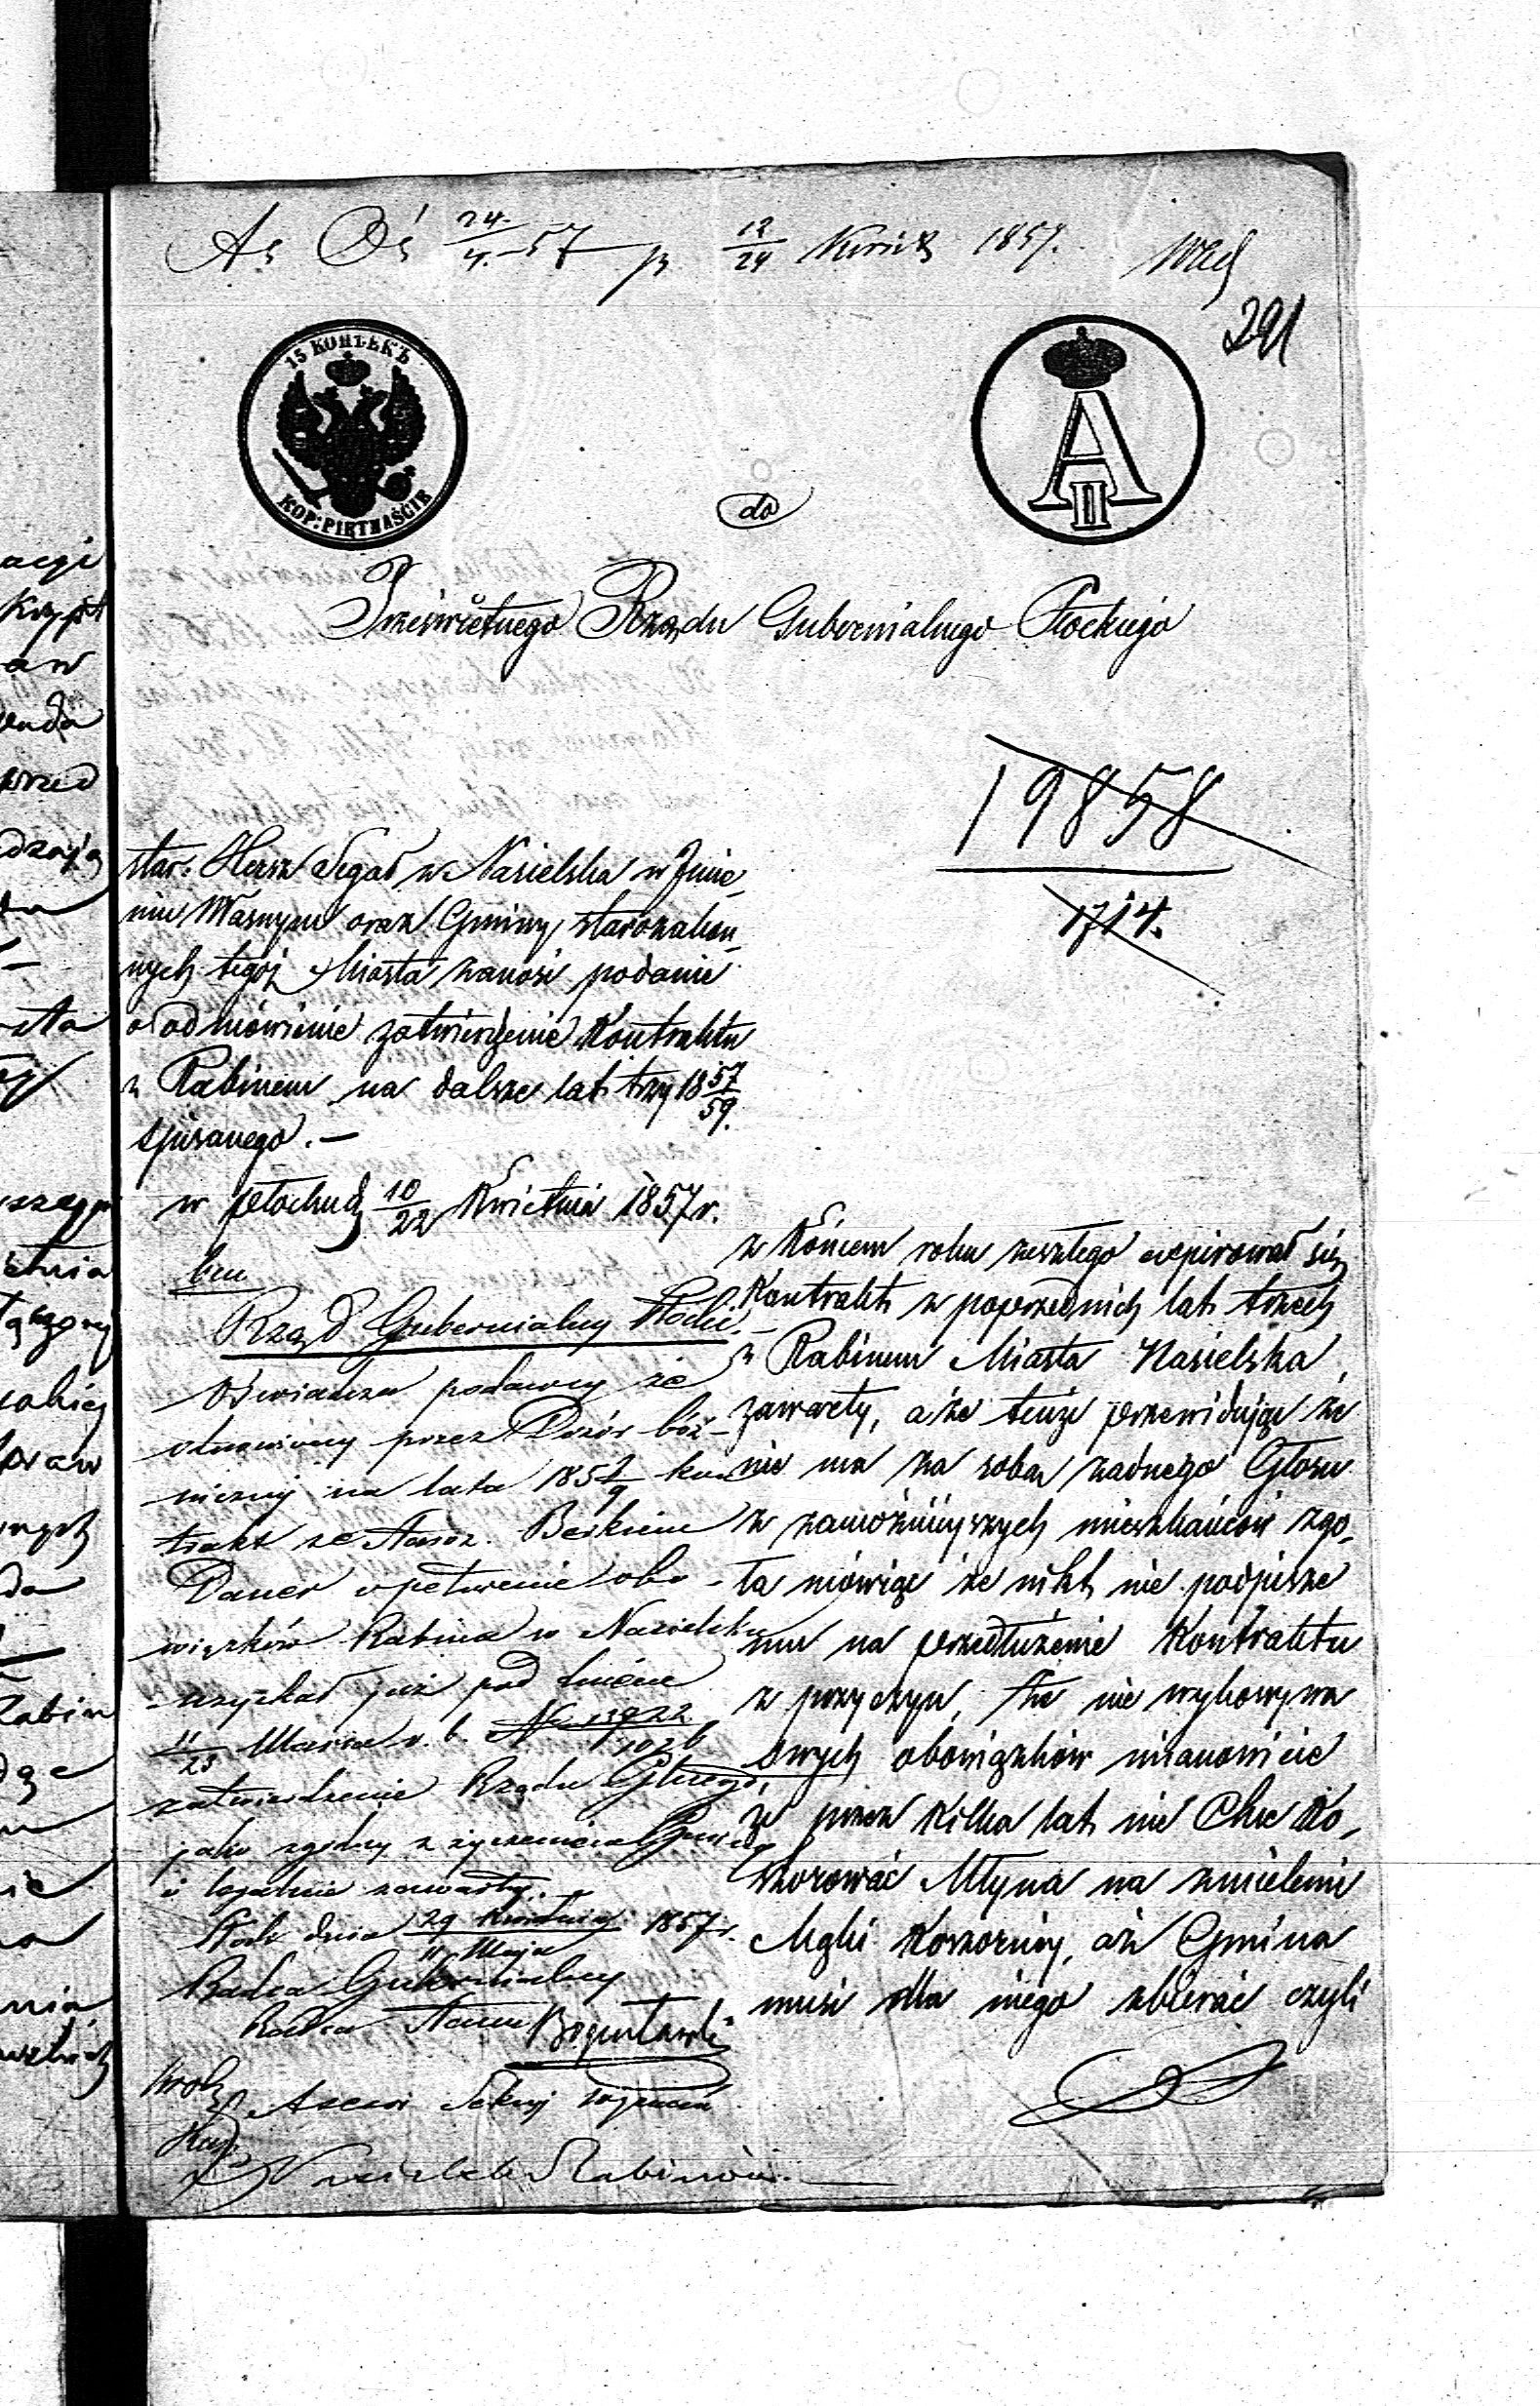 24/4 57 12/24 1857.
291
15 КОПѢЕКЪ
KOP: PIĘTNAŚCIE
A II
do
Prześwietnego Rządu Gubernialnego Płockiego
19858
1714.
star: Hersz Segał z Nasielska w Imie_
niu Własnym oraz Gminy starozakon_
nych tegoż Miasta zanosi podanie
o odmówienie zatwierdzenie Kontraktu
z Rabinem na dalsze lat trzy 1857/59.
spisanego. —
w Płocku d. 10/22 Kwietnia 1857 r.
Rząd Gubernialny Płocki. —
Oświadcza podawcy że
odnowiony przez Dozór bóż-
niczny na lata 1857/9 kon
trakt ze Staroz. Berkiem
Daner o pełnienie obo-
wiązków Rabina w Nasielsku
uzyskał już pod dniem
11/23 Marca r. b. N 13922/1026
zatwierdzenie Rządu Gbnego,
jako zgodny z życzeniem Gminy
i legalnie zawarty.
Płock dnia 29 Kwietnia/11 Maja 1857 r.
Radca Gubernialny
Radca Stanu
Nasielsk Rabinów. —
z Końcem roku zeszłego expirował się
Kontrakt z poprzednich lat trzech
z Rabinem Miasta Nasielska
zawarty, a że tenże przewidując że
nie ma za sobą żadnego Głosu
z zamożniejszych mieszkańców zgo_
ła mówiąc że nikt nie podpisze
mu na przedłużenie Kontraktu
z przyczyn, że nie wykonywa
swych obowiązków mianowicie
że przez Kilka lat nie Chce Ko_
szerować Młyna na zmielenie
Mąki Koszerney, aż Gmina
musi dla niego zbierać czyli